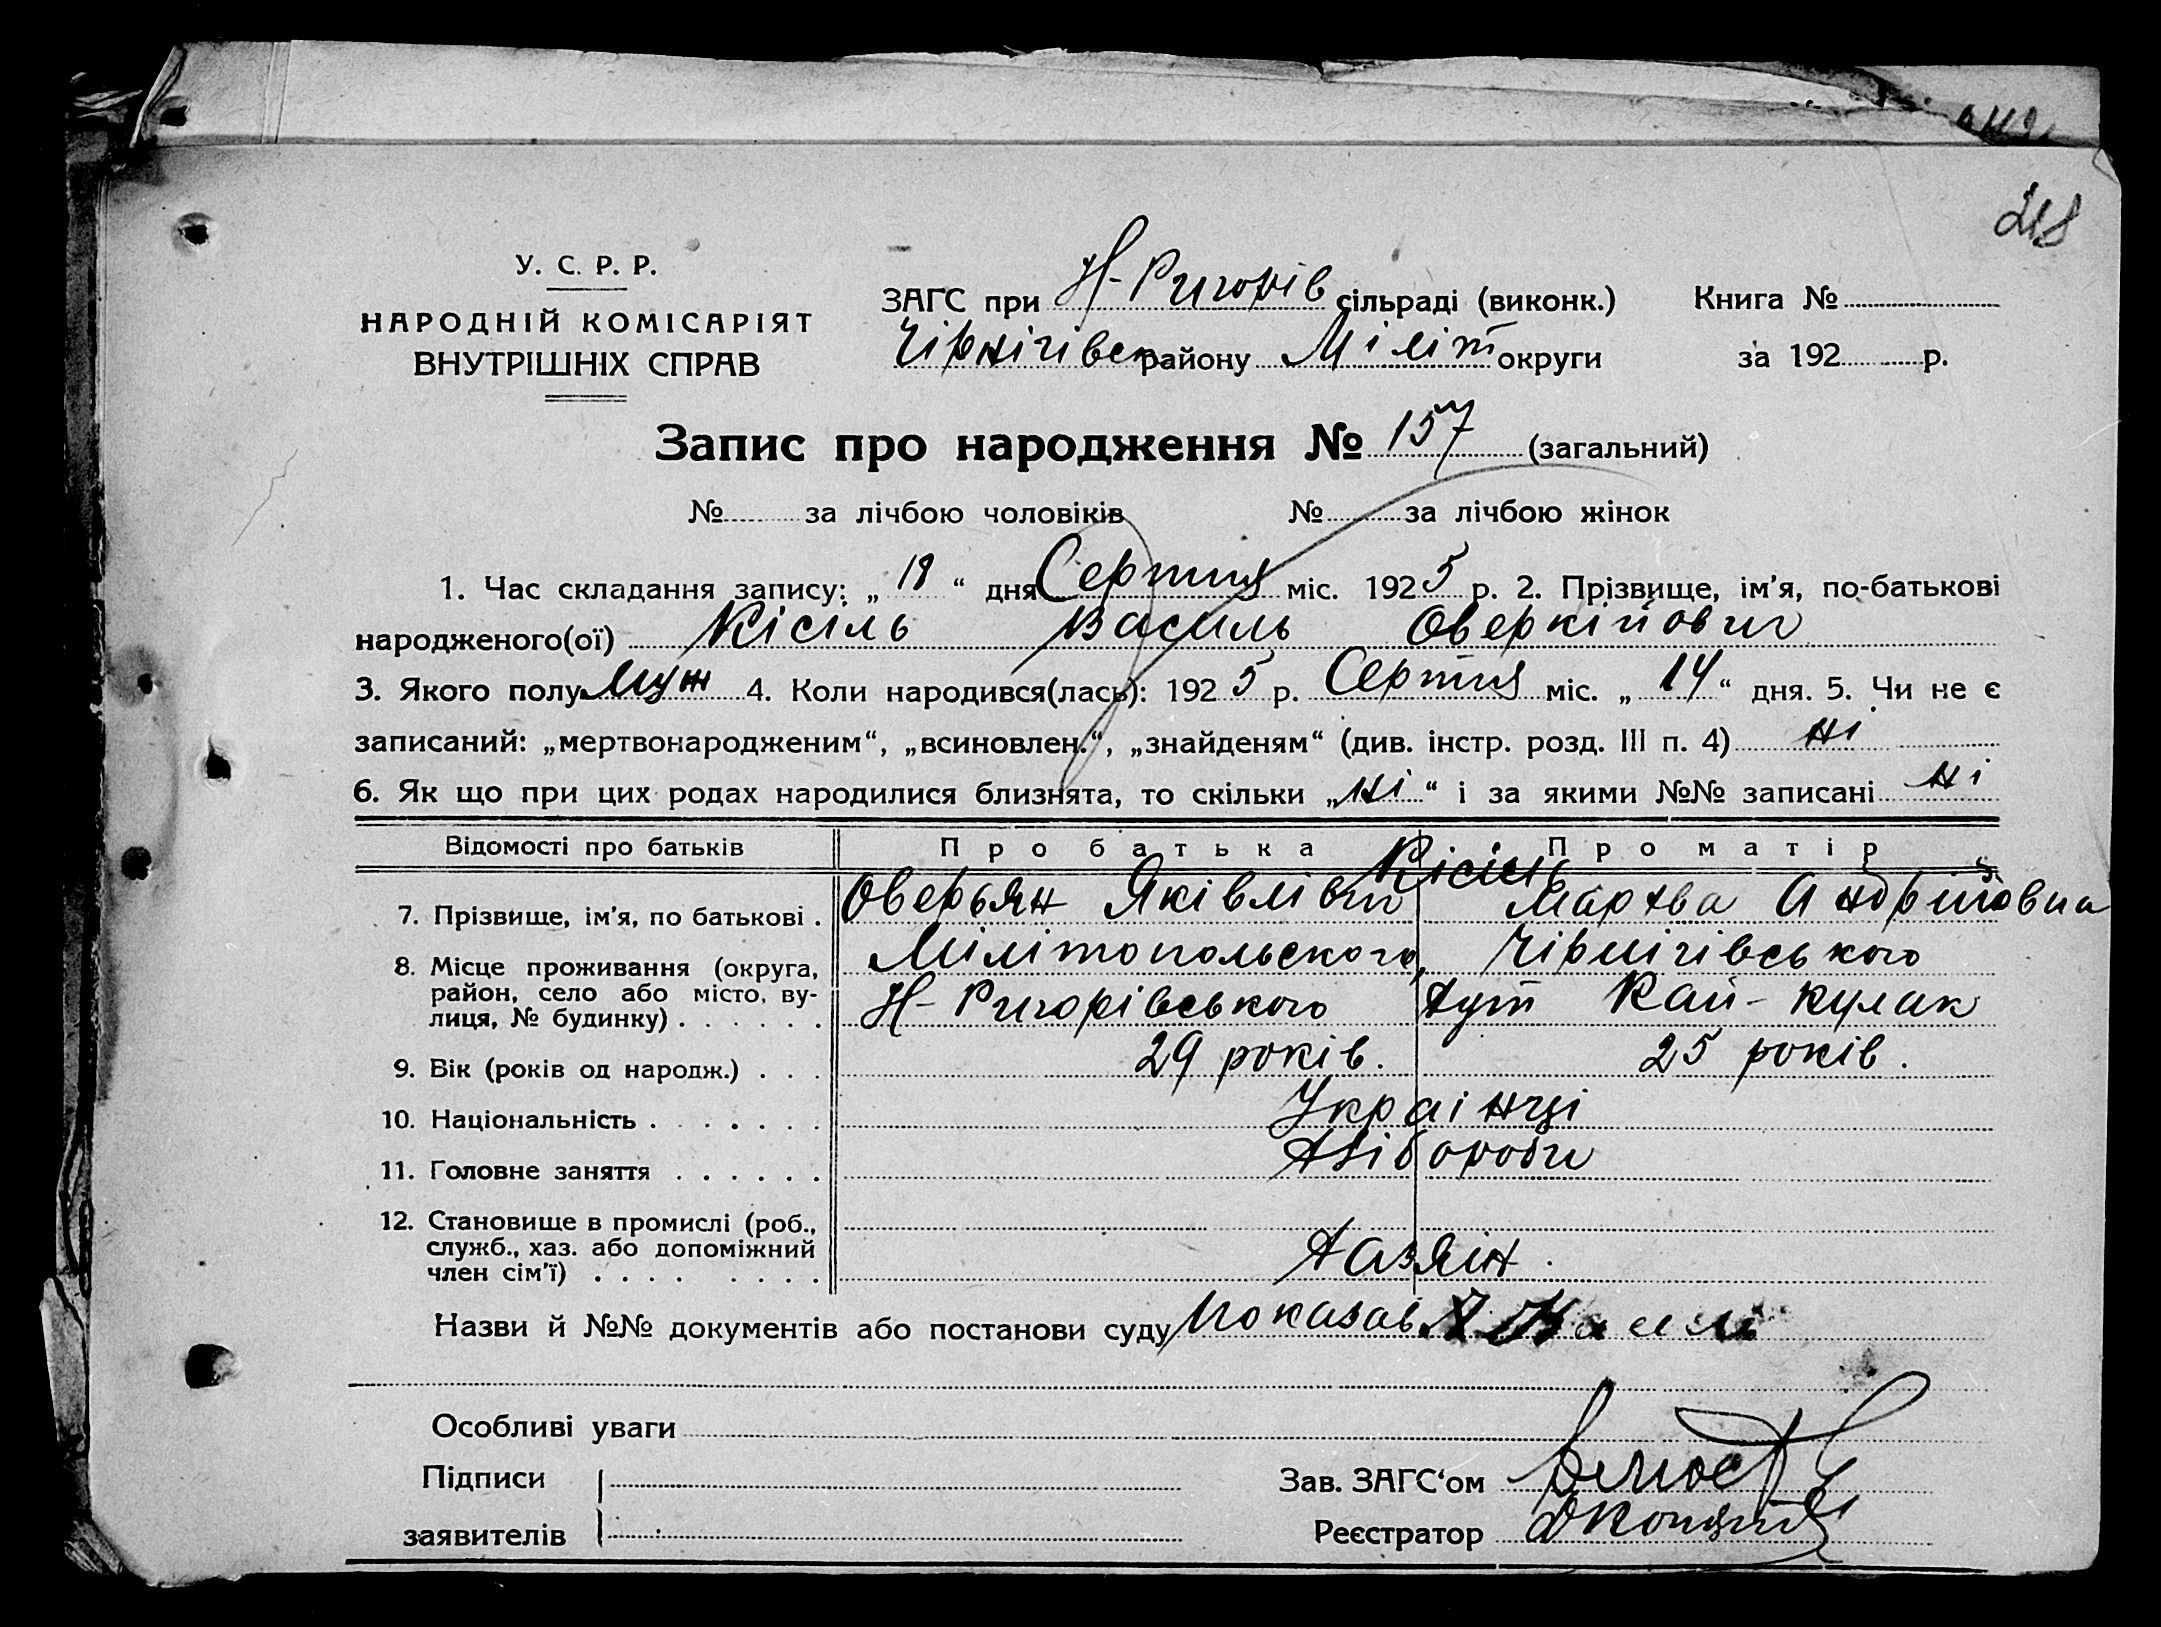 218
У. С. Р. Р.
НАРОДНІЙ КОМІСАРІЯТ
ВНУТРІШНІХ СПРАВ
ЗАГС при Н-Ригорів сільраді (виконк.) Книга №
Чірнігівск району Міліт округи за 192 р.
Запис про народження № 157 (загальний)
№ за лічбою чоловіків № за лічбою жінок
1. Час складання запису: „ 18 “ дня Серпня міс. 1925 р. 2. Прізвище, ім'я, по-батькові
народженого(ої) Кісіль Василь Оверкійович
3. Якого полу муж 4. Коли народився(лась): 1925 р. Серпня міс. „ 14 “ дня. 5. Чи не є
записаний: „мертвонародженим“, „всиновлен.“, „знайденям“ (див. інстр. розд. III п. 4) ні
6. Як що при цих родах народилися близнята, то скільки „ ні “ і за якими №№ записані ні
Відомості про батьків Про батька Про матір
Кісіль
7. Прізвище, ім'я, по батькові . Оверьян Яківлівич Мархва Андріівна
8. Місце проживання (округа, Мілітопольского, Чірнігівського
район, село або місто, ву-
лиця, № будинку) . . . . . . Н-Ригорівського хут Кай-Кулак
9. Вік (років од народж.) . . . 29 років. 25 років.
10. Національність . . . . . . . Украінці
11. Головне заняття . . . . . . Хлібороби
12. Становище в промислі (роб.,
служб., хаз. або допоміжний
член сім'ї) . . . . . . . . Хазяін.
Назви й №№ документів або постанови суду показав
Особливі уваги
Підписи
Зав. ЗАГС'ом
заявителів
Реєстратор